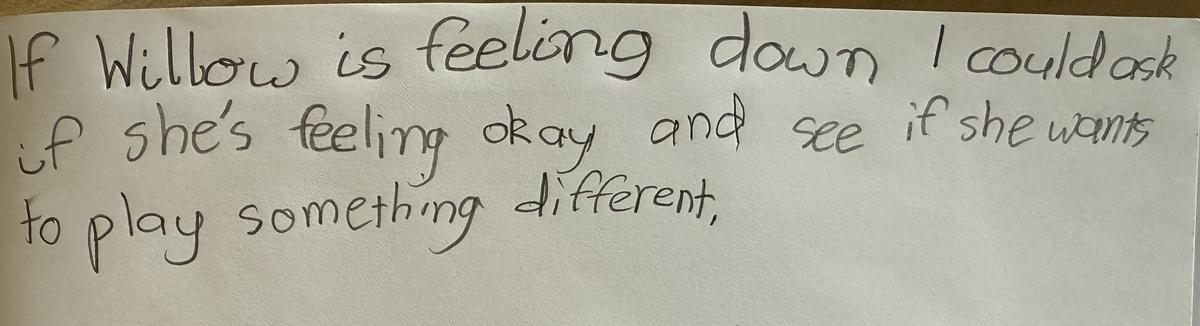 If Willow is feeling down I could ask
if she's feeling okay and see if she wants
to play something different,